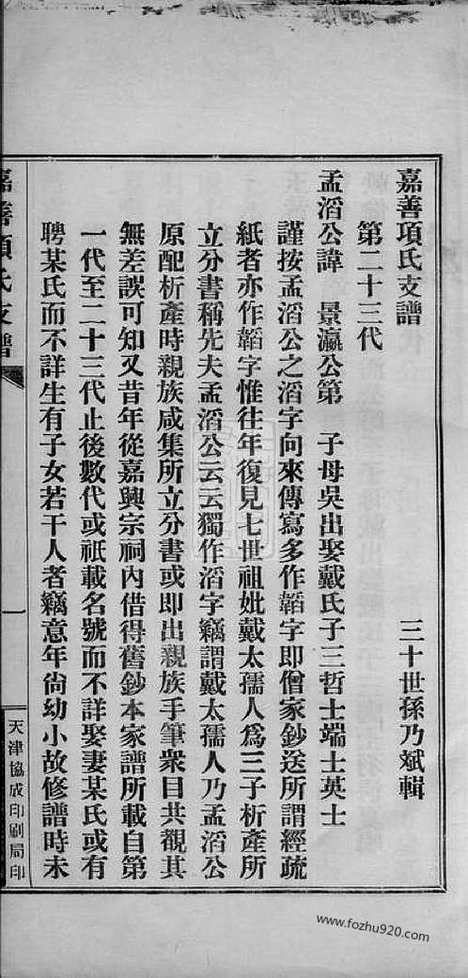 嘉善項氏支譜
三十世孫乃斌輯
第二十三代
孟滔公諱　景瀛公第　子母吳出娶戴氏子三哲士端士英士
謹按孟滔公之滔字向來傳寫多作韜字即僧家鈔送所謂經疏
紙者亦作韜字惟往年復見七世祖妣戴太孺人爲三子析產所
立分書稱先夫孟滔公云云獨作滔字竊謂戴太孺人乃孟滔公
原配析產時親族咸集所立分書或即出親族手筆衆目共觀其
無差誤可知又昔年從嘉興宗祠內借得舊鈔本家譜所載自第
一代至二十三代止後數代或祇載名號而不詳娶妻某氏或有
聘某氏而不詳生有子女若干人者竊意年尙幼小故修譜時未
嘉善項氏支譜
一
天津協成印刷局印
www.fozhu920.com